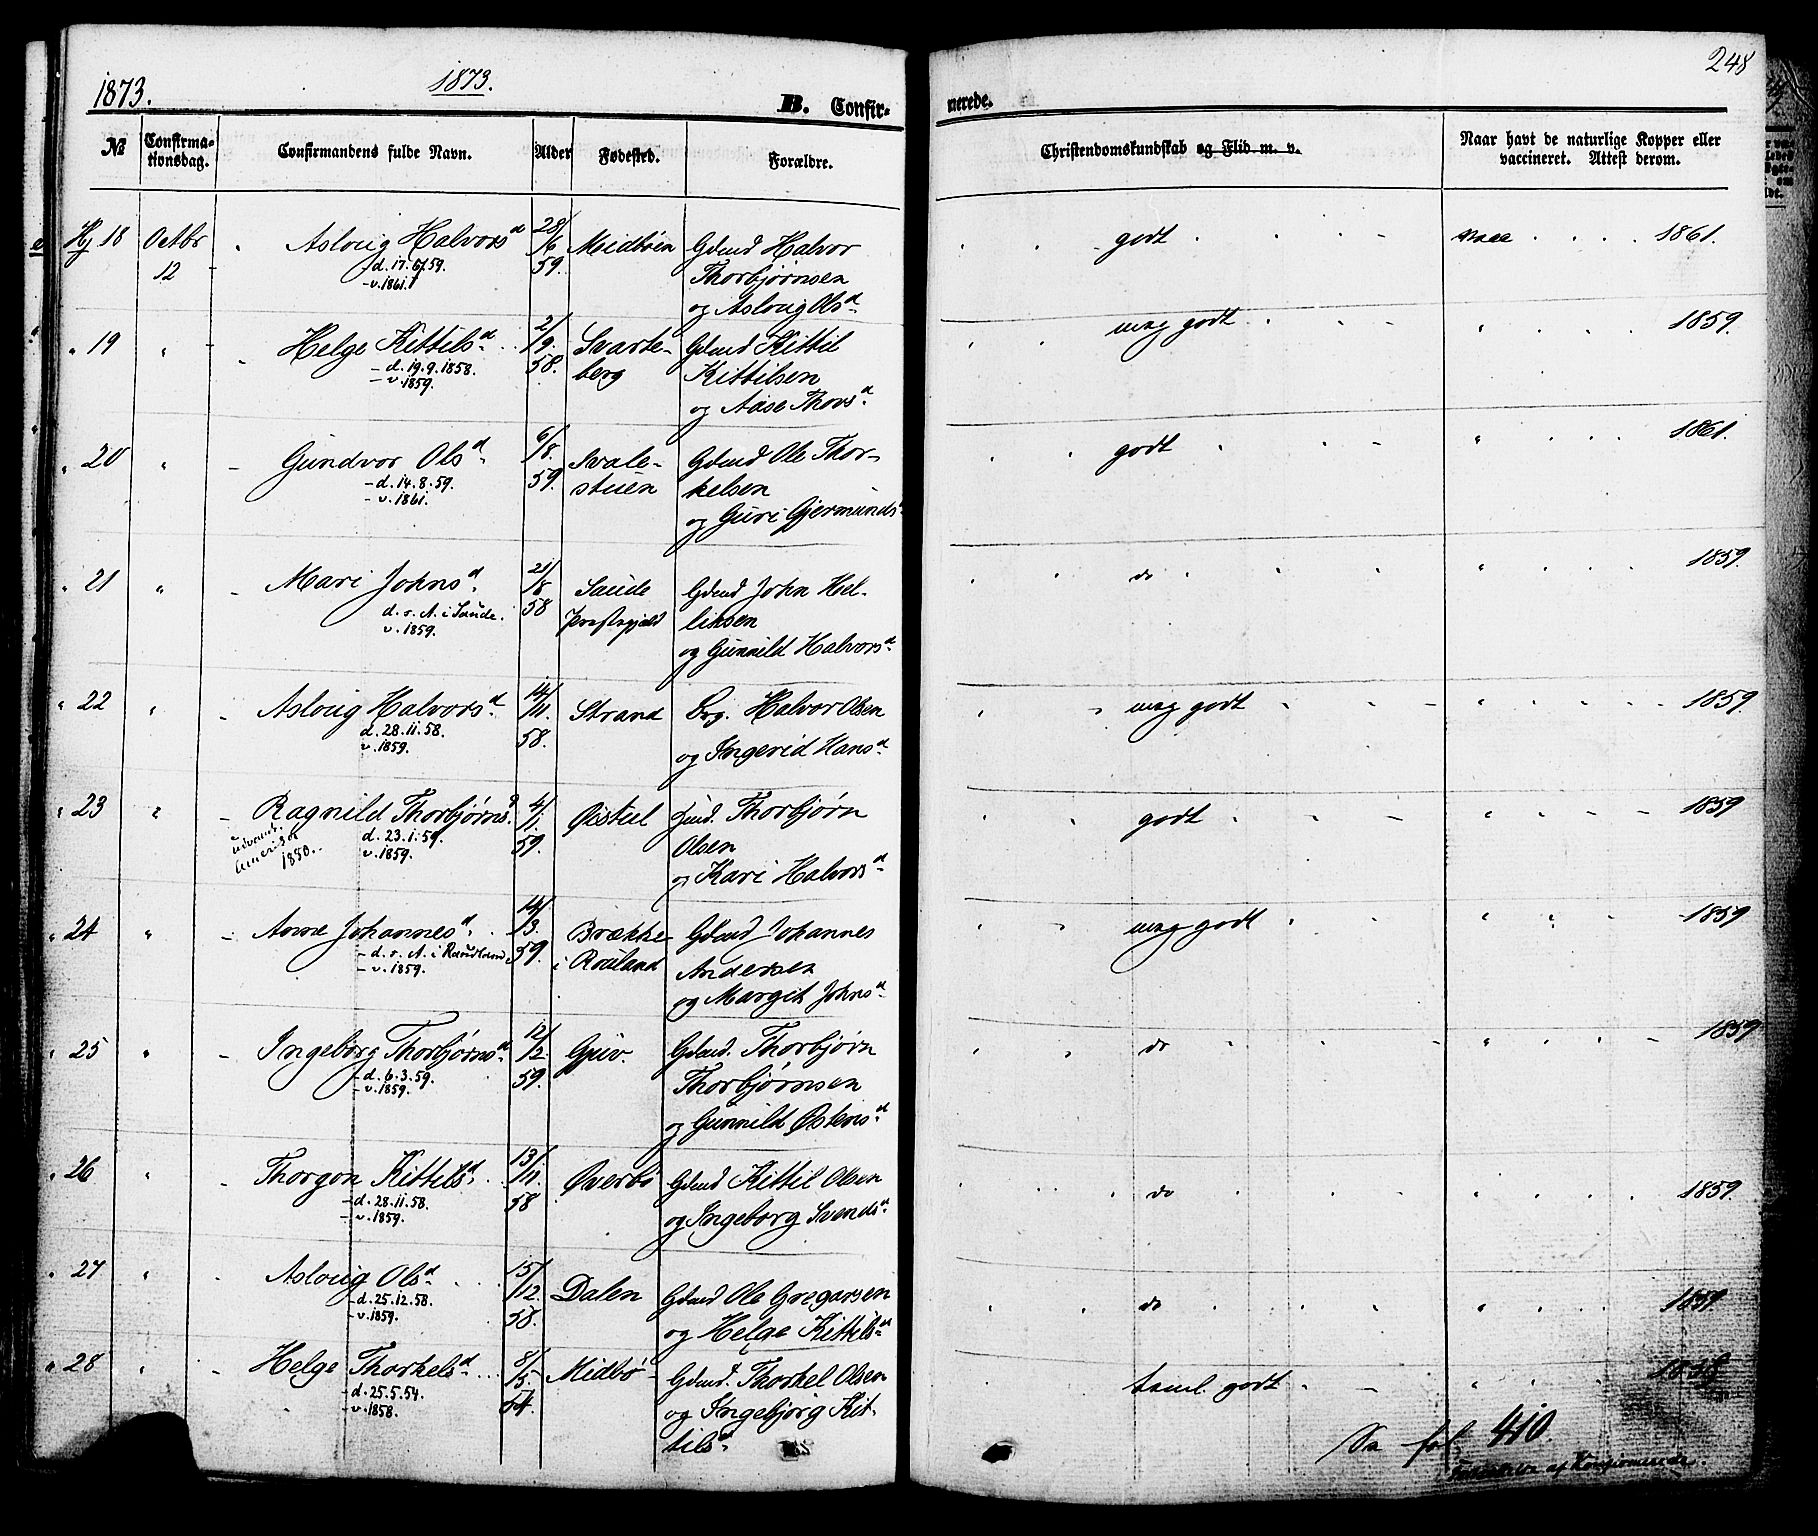 1873. 1873. B. Confir-
№ Confirmationsdag. Confirmandens fulde Navn. Alder Fødested. Forældre.
Hj 18 Octbr 12 Asloug Halvorsd 28/6 59. Midtbøen Gdmd Halvor
d. 17.6.59. Thorbjørnsen
v. 1861. og Asloug Olsd
" 19 " Helge Kittilsd 2/9. 58. Svarte- Gdmd Kittil
d. 19.9.1858. berg Kittilsen
v. 1859. og Aase Thovsd
" 20 " Gundvor Olsd 6/8. 59. Svale- Gdmd Ole Thor-
d. 14.8.59. stuen kelsen
v. 1861. og Guri Gjermunds
" 21 " Mari Johnsd 21/8 58 Saude Gdmd John Hel-
d. o. A. i Saude. Præstegjeld liksen
v. 1859. og Gunnild Halvorsd
" 22 " Asloug Halvorsd 14/11 58. Strand Brg. Halvor Olsen
d. 28.11.58. og Ingerid Hansd
v. 1859.
" 23 " Ragnild Thorbjørnsd 4/1. 59. Øisteul Thorbjørn
d. 23.1.59. Olsen
v. 1859. og Kari Halvorsd
udvandr.
Amerika
1850.
" 24 " Anne Johannesd 14/3. 59. Brække Gdmd Johannes
d. o. A. i Raudland i Rouland Andersen
v. 1859. og Margit Johnsd
" 25 " Ingeborg Thorbjørnsd 12/2. 59. Gjuv. Gdmd. Thorbjørn
d. 6.3.59. Thorbjørnsen
v. 1859. og Gunnild Østensd
" 26 " Thorgon Kittelsd 13/11. 58 Øverbø Gdmd Kittil Olsen
d. 28.11.58. og Ingeborg Svendsd
v. 1859.
" 27 " Asloug Olsd 15/12. 58. Dalen Gdmd Ole Gregarsen
d. 25.12.58. og Helge Kittilsd
v. 1859.
" 28 " Helge Thorkelsd 8/5. 54. Midbø Gdmd. Thorkel Olsen
d. 25.5.54. og Ingebjørg Kit-
v. 1858. tilsd
248
nerede.
Christendomskundskab og Flid m. v. Naar havt de naturlige Kopper eller
vaccineret. Attest derom.
godt vacc 1861.
meg godt " 1859.
godt " 1861.
do " 1859.
meg godt " 1859.
godt " 1859
meg godt " 1859
do " 1859
do " 1859.
do " 1859
taml. godt "
Se fol. 410.
af Konfirmerede.